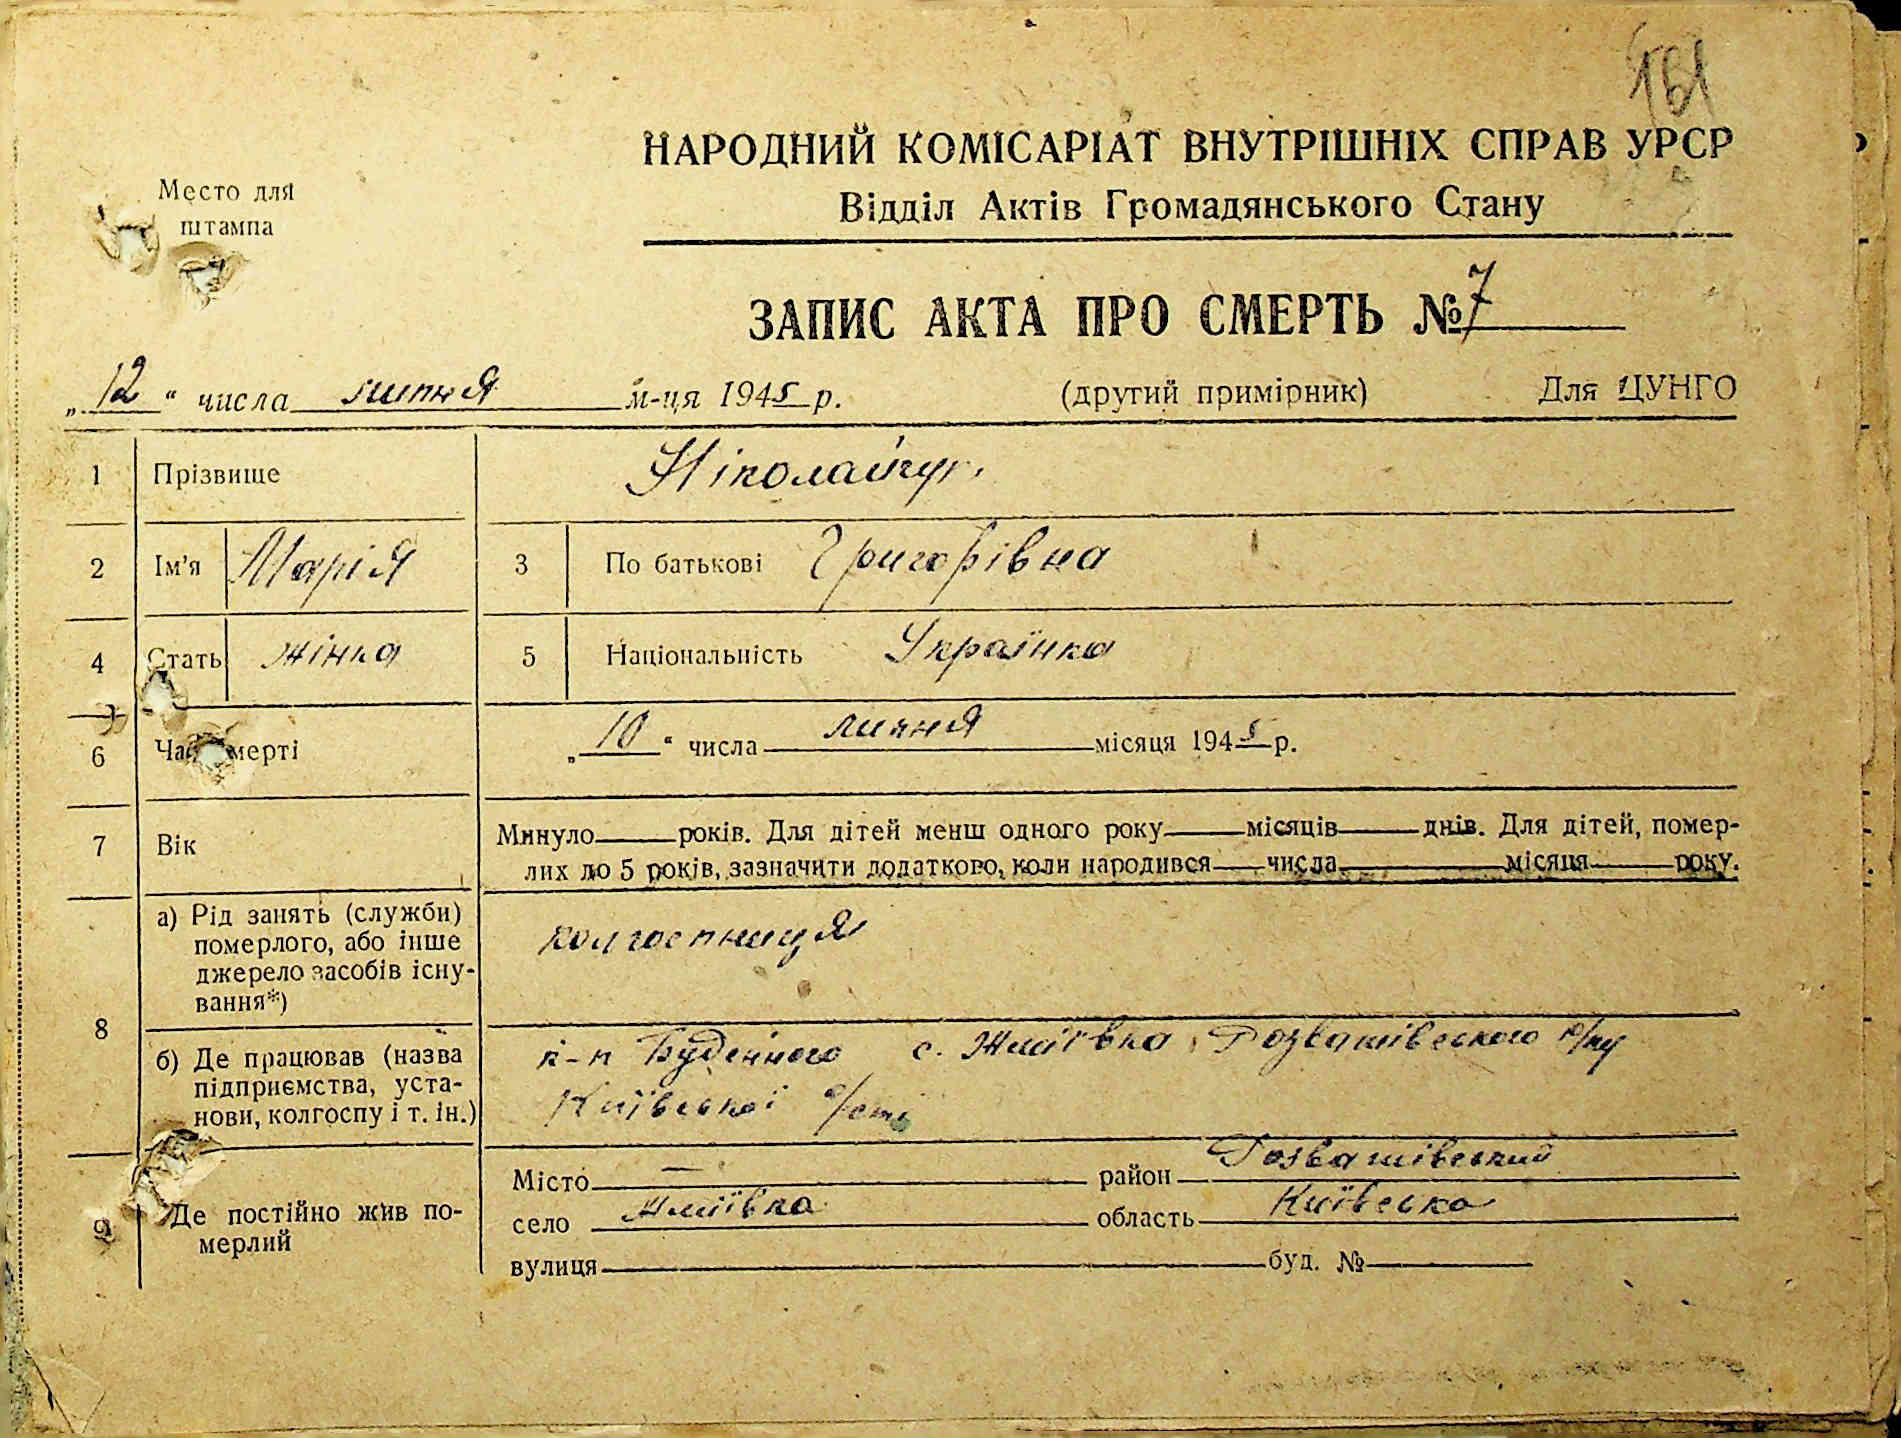 161
НАРОДНИЙ КОМІСАРІАТ ВНУТРІШНІХ СПРАВ УРСР
Место для штампа
Відділ Актів Громадянського Стану
ЗАПИС АКТА ПРО СМЕРТЬ № 7
„12“ числа липня м-ця 1945 р. (другий примірник) Для ЦУНГО
1 Прізвище Ніколайчук
2 Ім'я Марія 3 По батькові Григорівна
4 Стать жінка 5 Національність Українка
6 Час смерті „10“ числа липня місяця 1945 р.
7 Вік Минуло років. Для дітей менш одного року місяців днів. Для дітей, помер-
лих до 5 років, зазначити додатково, коли народився числа місяця року.
8 а) Рід занять (служби) померлого, або інше джерело засобів існу-вання*) колгоспниця
б) Де працював (назва підприємства, уста-нови, колгоспу і т. ін.) к-п Буденного с. Жміївка Розважівського р/ну
Київської о/сті
9 Де постійно жив по-мерлий Місто — район Розважівський
село Жміївка область Київська
вулиця буд. №